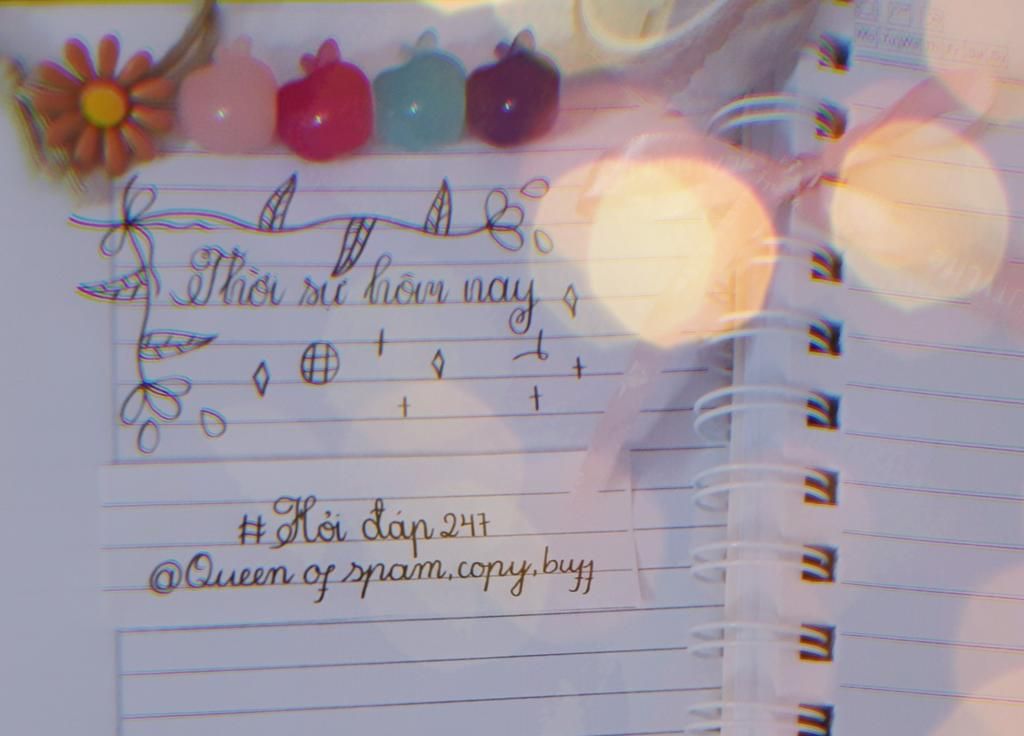 Thời sự hôm nay
#Hỏi đáp 247
@Queen of spam,copy,buff